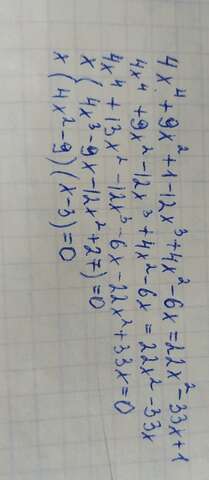 4x⁴+9x²+1-12x³+4x²-6x=22x²-33x+1
4x⁴+9x²-12x³+4x²-6x=22x²-33x
4x⁴+13x²-12x³-6x-22x²+33x=0
x(4x³-9x-12x²+27)=0
x(4x²-9)(x-3)=0